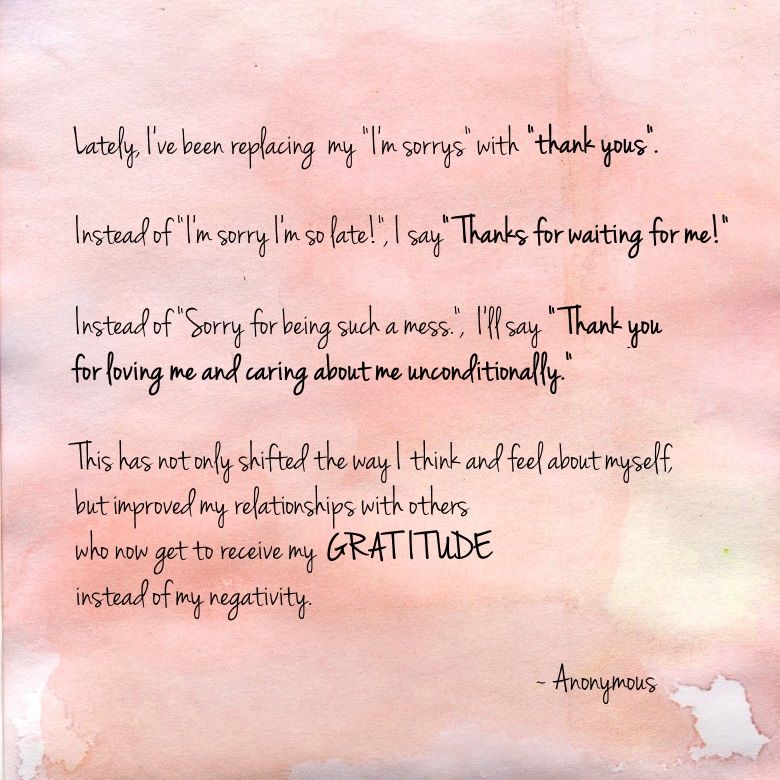 Lately, I've been replacing my "I'm sorrys" with "thank yous".
Instead of "I'm sorry I'm so late!", I say "Thanks for waiting for me!"
Instead of "Sorry for being such a mess.", I'll say "Thank you
for loving me and caring about me unconditionally."
This has not only shifted the way I think and feel about myself,
but improved my relationships with others
who now get to receive my GRATITUDE
instead of my negativity.
~ Anonymous